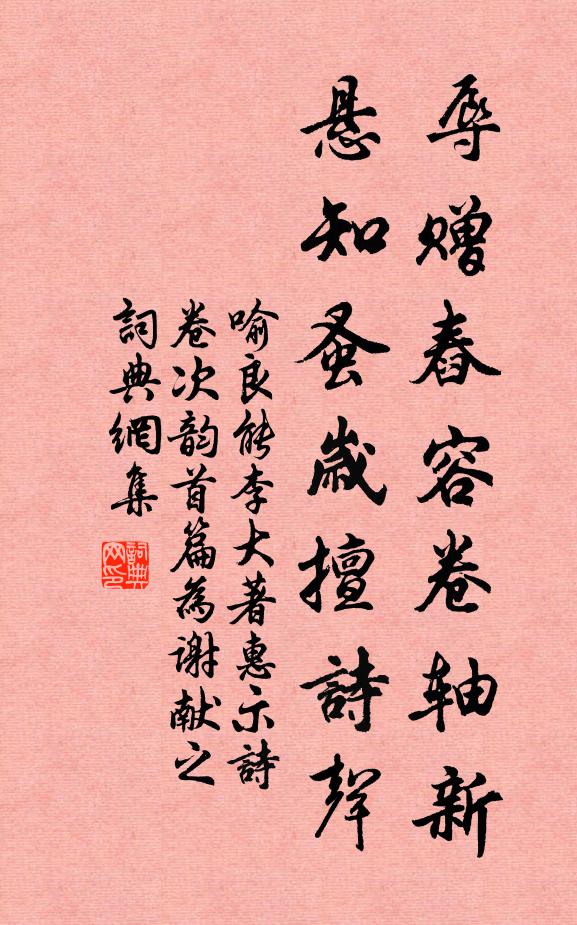 辱赠舂容卷轴新
悬知蚤歲擅詩聲
喻良能李大著惠示詩
卷次韵首篇為謝献之
詞典網集
詞典网印